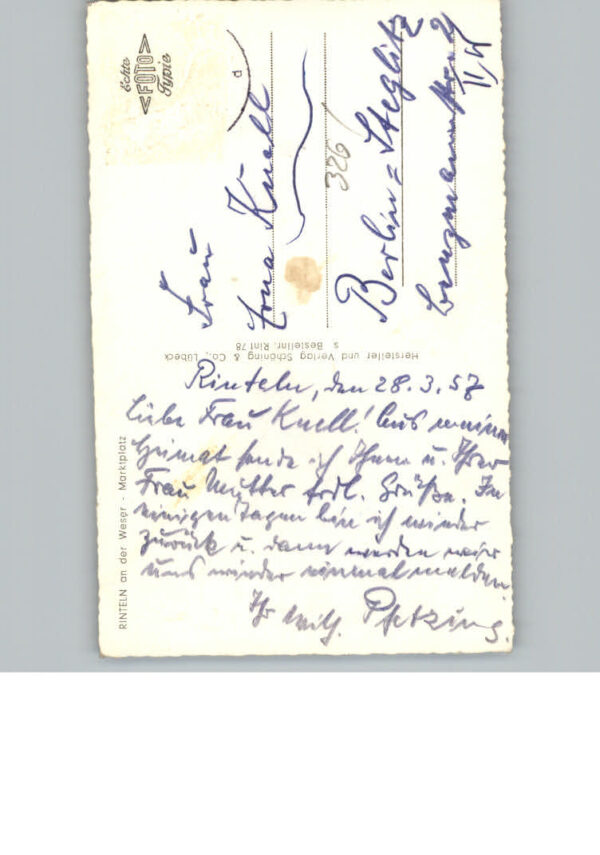 Echte
<FOTO>
Typie
Frau
Erna Knell
326
Berlin = Steglitz
II, lk
Hersteller und Verlag Schöning & Co., Lübeck
s Bestellnr.: Rint 78
RINTELN an der Weser - Marktplatz
Rinteln, den 28.3.57
Liebe Frau Knell! Aus meiner
Heimat sende ich Ihnen u. Ihrer
Frau Mutter frdl. Grüße. In
einigen Tagen bin ich wieder
zurück u. dann werden wir
uns wieder einmal melden.
Ihr Pfetzing.